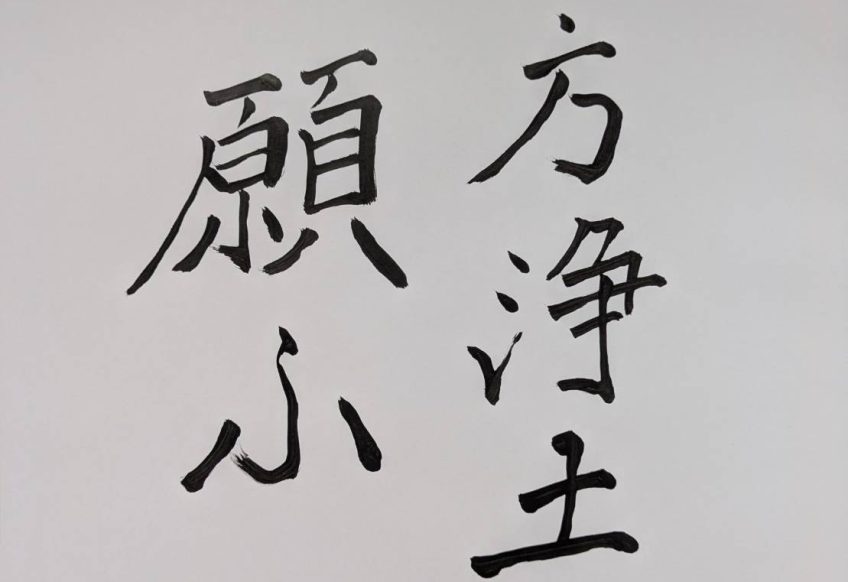 方浄土
願ふ